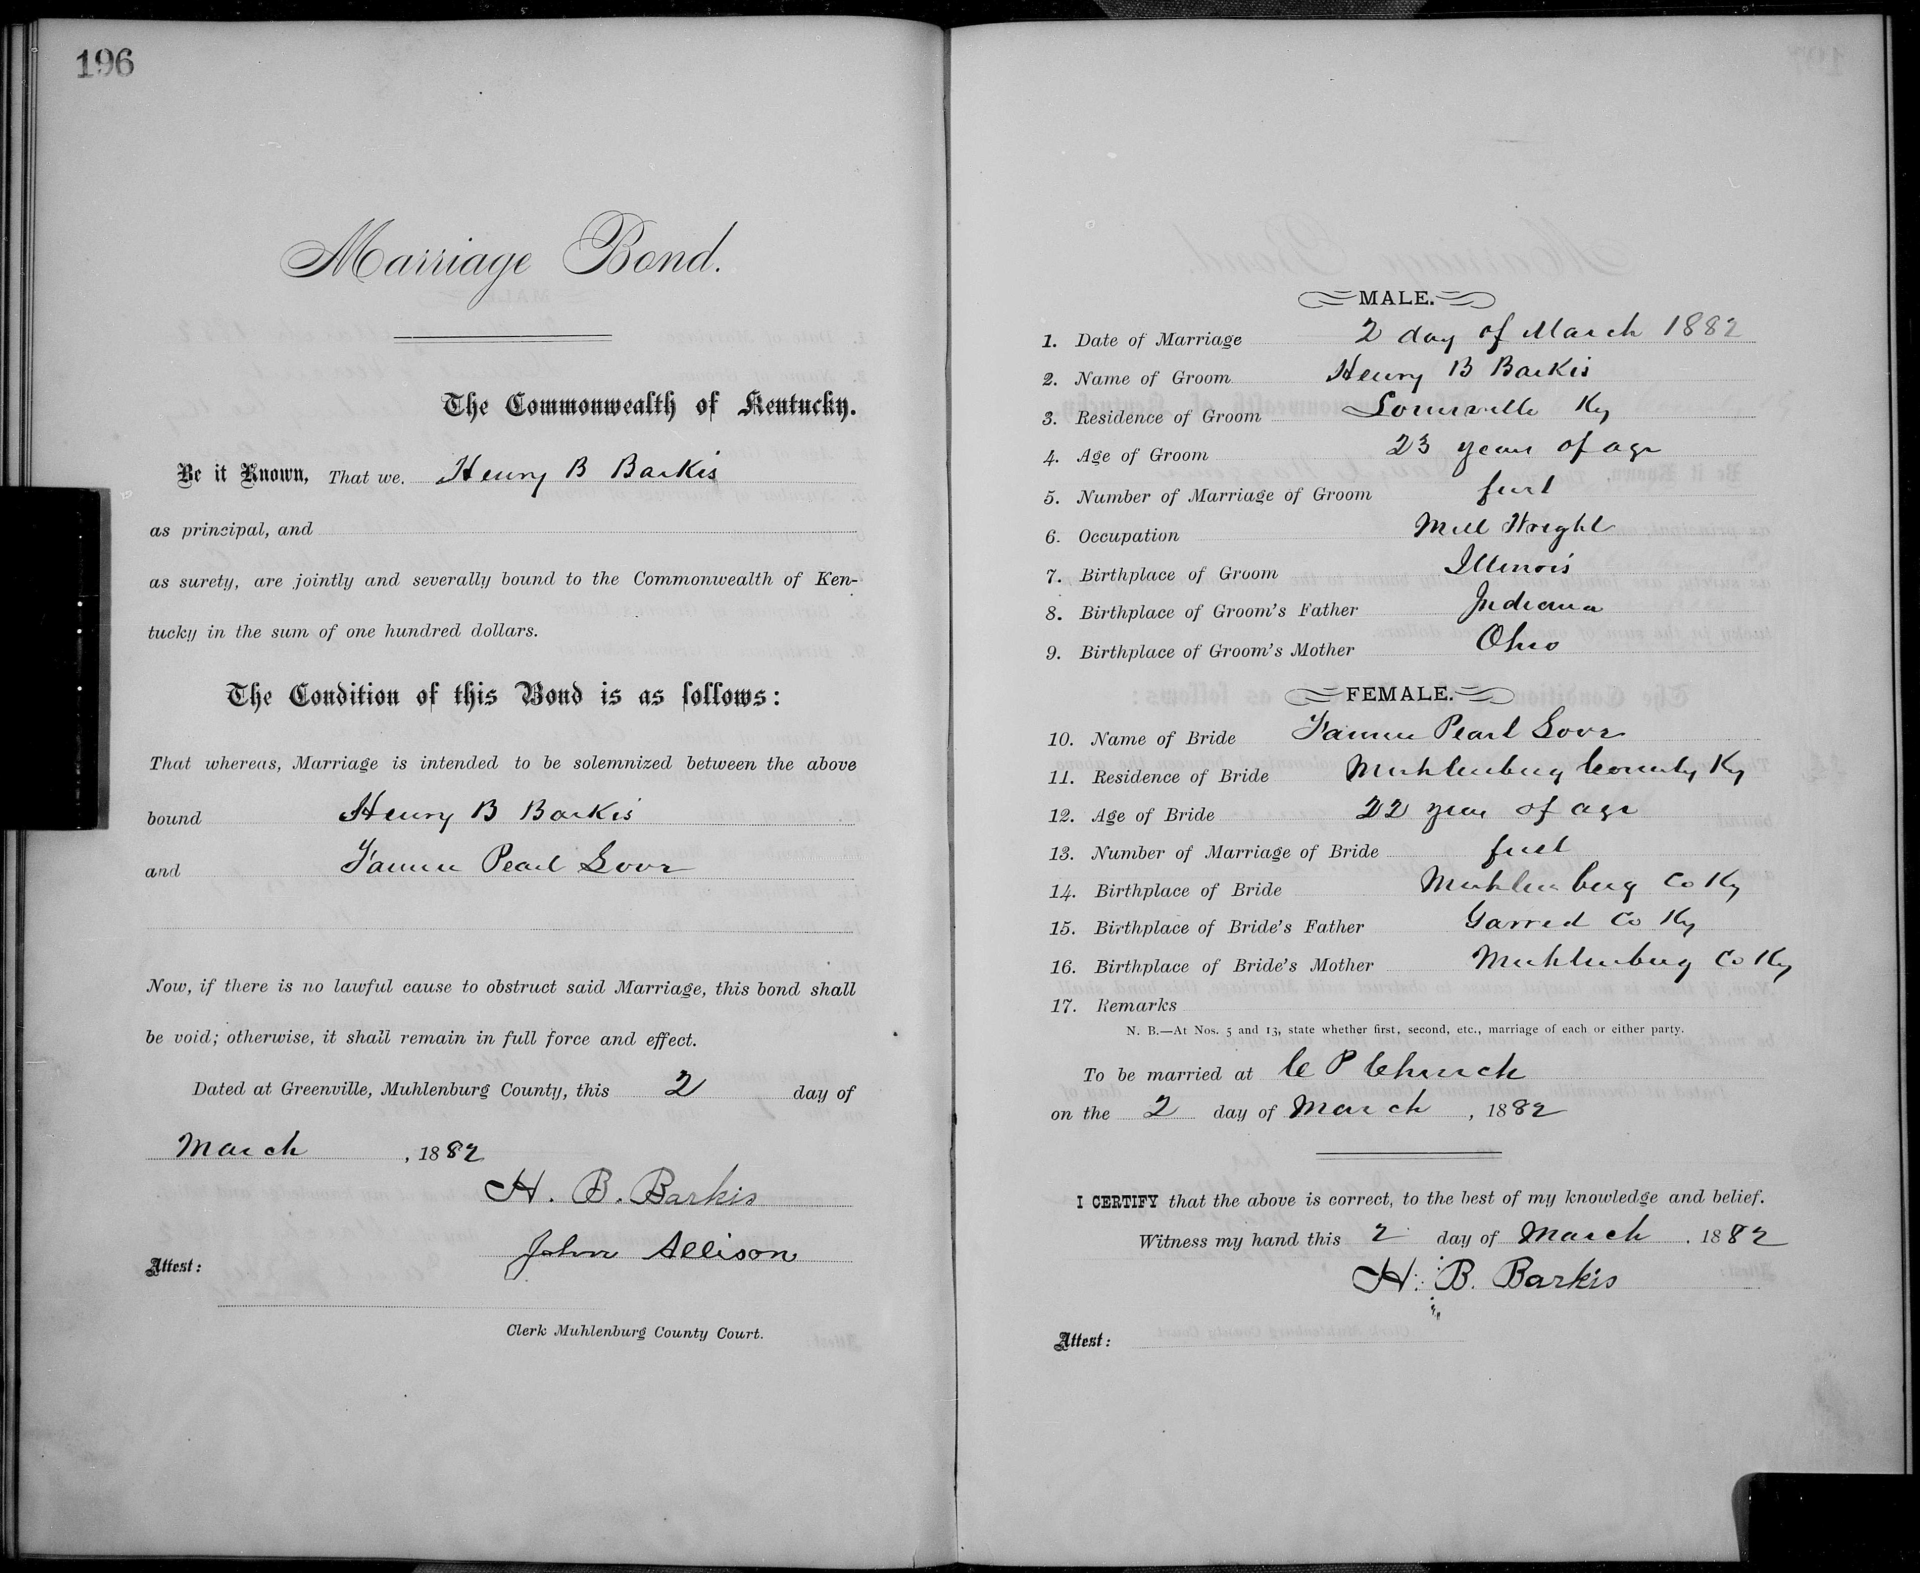 196
Marriage Bond.
The Commonwealth of Kentucky.
Be it Known, That we, Henry B Barkis
as principal, and
as surety, are jointly and severally bound to the Commonwealth of Ken-
tucky in the sum of one hundred dollars.
The Condition of this Bond is as follows:
That whereas, Marriage is intended to be solemnized between the above
bound Henry B Barkis
and Fannie Pearl
Now, if there is no lawful cause to obstruct said Marriage, this bond shall
be void; otherwise, it shall remain in full force and effect.
Dated at Greenville, Muhlenburg County, this 2 day of
March, 1882
H. B. Barkis
John Allison
Attest:
Clerk Muhlenburg County Court.
MALE.
1. Date of Marriage 2 day of March 1882
2. Name of Groom Henry B Barkis
3. Residence of Groom Louisville Ky
4. Age of Groom 23 years of age
5. Number of Marriage of Groom first
6. Occupation Mill Wright
7. Birthplace of Groom Illinois
8. Birthplace of Groom's Father Indiana
9. Birthplace of Groom's Mother Ohio
FEMALE.
10. Name of Bride Fannie Pearl
11. Residence of Bride Muhlenburg County Ky
12. Age of Bride 22 year of age
13. Number of Marriage of Bride first
14. Birthplace of Bride Muhlenburg Co Ky
15. Birthplace of Bride's Father Garred Co Ky
16. Birthplace of Bride's Mother Muhlenburg Co Ky
17. Remarks
N. B.—At Nos. 5 and 13, state whether first, second, etc., marriage of each or either party.
To be married at C P Church
on the 2 day of March, 1882
I CERTIFY that the above is correct, to the best of my knowledge and belief.
Witness my hand this 2 day of March. 1882
H. B. Barkis
Attest: